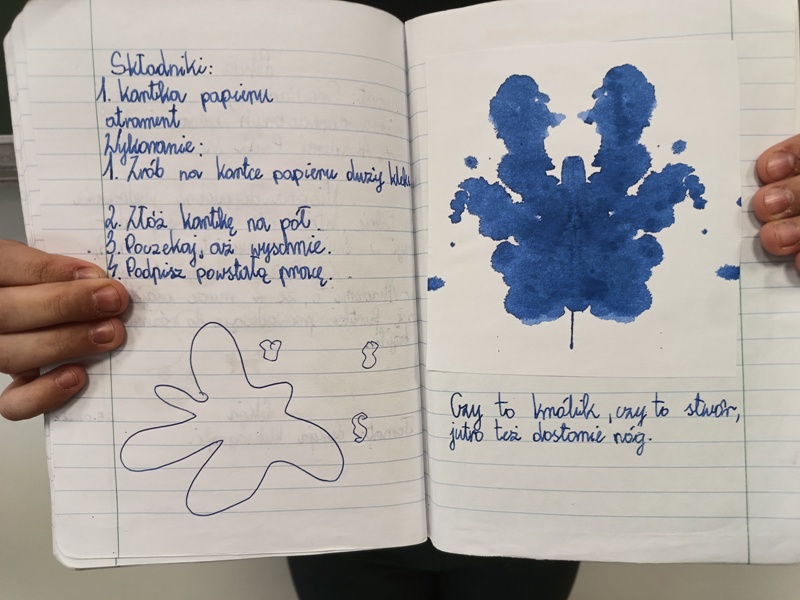 Składniki:
1. kartka papieru
atrament
Wykonanie:
1. Zrób na kartce papieru duży kleks
2. Złóż kartkę na pół.
3. Poczekaj, aż wyschnie.
4. Podpisz powstałą pracę.
Czy to królik, czy to stwór,
jutro też dostanie nóg.